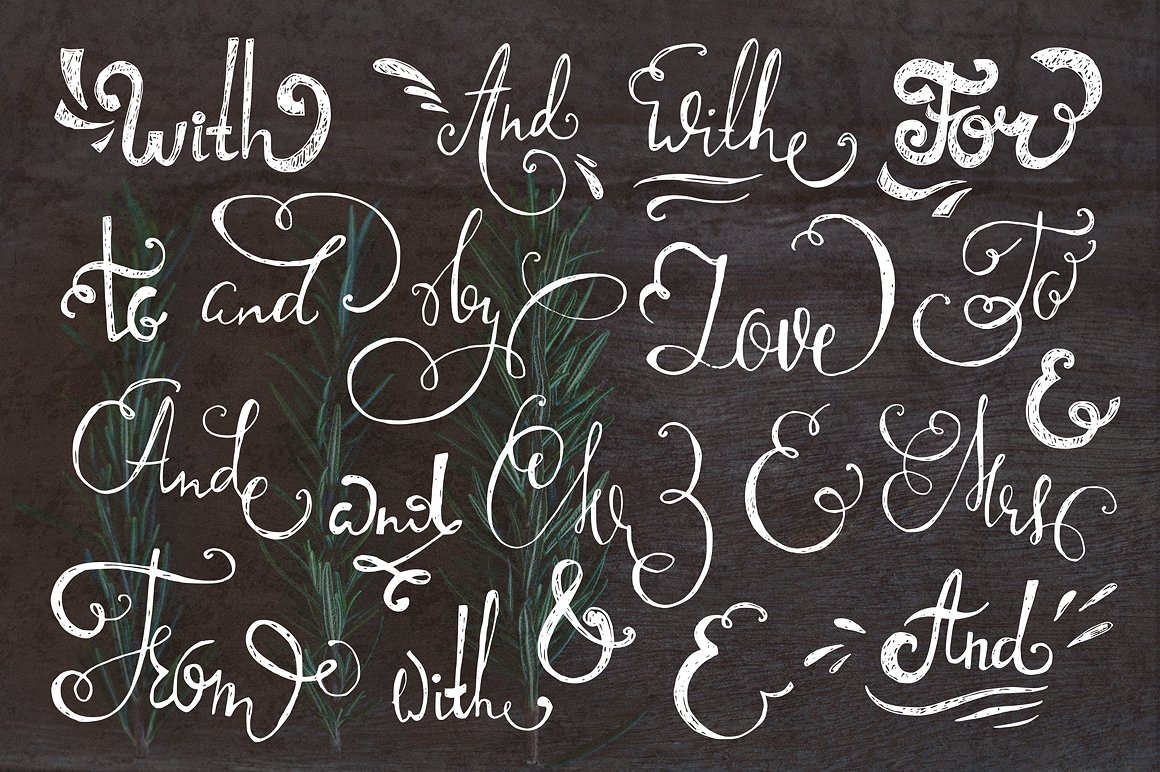 With And With For
to and by Love To
And and Mr & Mrs &
From with & & And